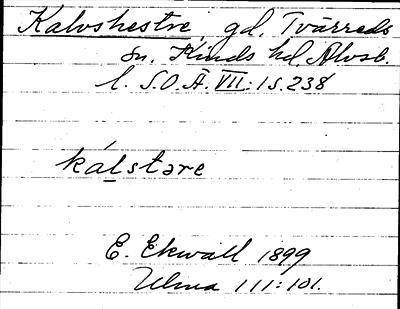 Kalvshestre, gd. Tvärreds
sn. Kinds hd. Älvsb.
l. S.O.Ä. VII:1 s. 238
kálstəre
E. Ekwall 1899
Ulma 111:101.